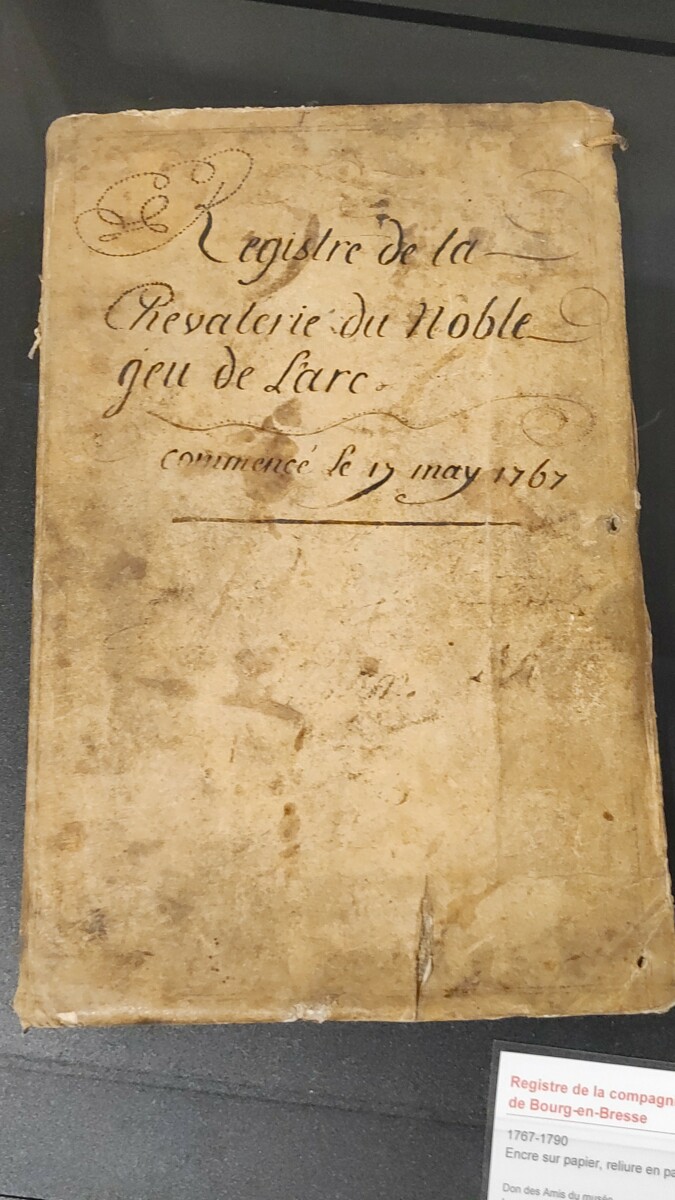 Registre de la
Chevalerie du Noble
jeu de L'arc
commencé le 17 may 1767
Registre de la
de Bourg-en-Bresse
1767-1790
Encre sur papier, reliure en
Don des Amis du